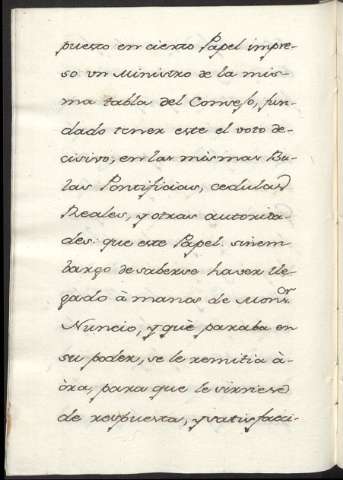 puesto en cierto Papel impre-
so vn Ministro de la mis-
ma tabla del Consejo, fun-
dado tener este el voto de-
cisivo, en las mismas Bu-
las Pontificias, cedulas
Reales, y otras autorita-
des: que este Papel sinem-
bargo de saberse haver lle-
gado à manos de Monr.
Nuncio, y què paraba en
su poder, se le remitia à-
òra, para que le sirviese
de respuesta, y satisfacci-